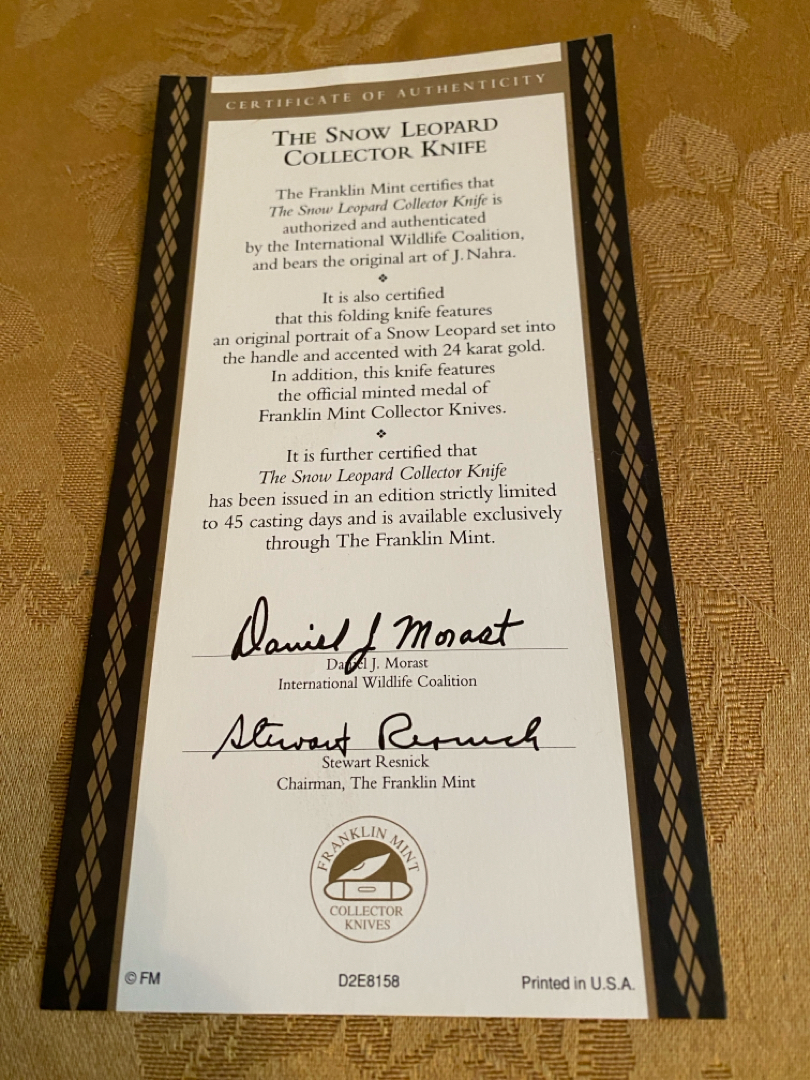 CERTIFICATE OF AUTHENTICITY
THE SNOW LEOPARD
COLLECTOR KNIFE
The Franklin Mint certifies that
The Snow Leopard Collector Knife is
authorized and authenticated
by the International Wildlife Coalition,
and bears the original art of J. Nahra.
It is also certified
that this folding knife features
an original portrait of a Snow Leopard set into
the handle and accented with 24 karat gold.
In addition, this knife features
the official minted medal of
Franklin Mint Collector Knives.
It is further certified that
The Snow Leopard Collector Knife
has been issued in an edition strictly limited
to 45 casting days and is available exclusively
through The Franklin Mint.
Daniel J Morast
Daniel J. Morast
International Wildlife Coalition
Stewart Resnick
Stewart Resnick
Chairman, The Franklin Mint
FRANKLIN MINT
COLLECTOR
KNIVES
© FM D2E8158 Printed in U.S.A.